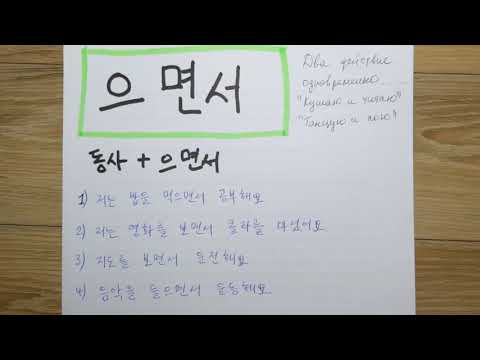 으면서
Два действие
одновременно....
"Кушаю и читаю"
"Танцую и пою"
동사 + 으면서
1) 저는 밥을 먹으면서 공부해요
2) 저는 영화를 보면서 콜라를 마셨어요
3) 지도를 보면서 운전해요
4) 음악을 들으면서 운동해요